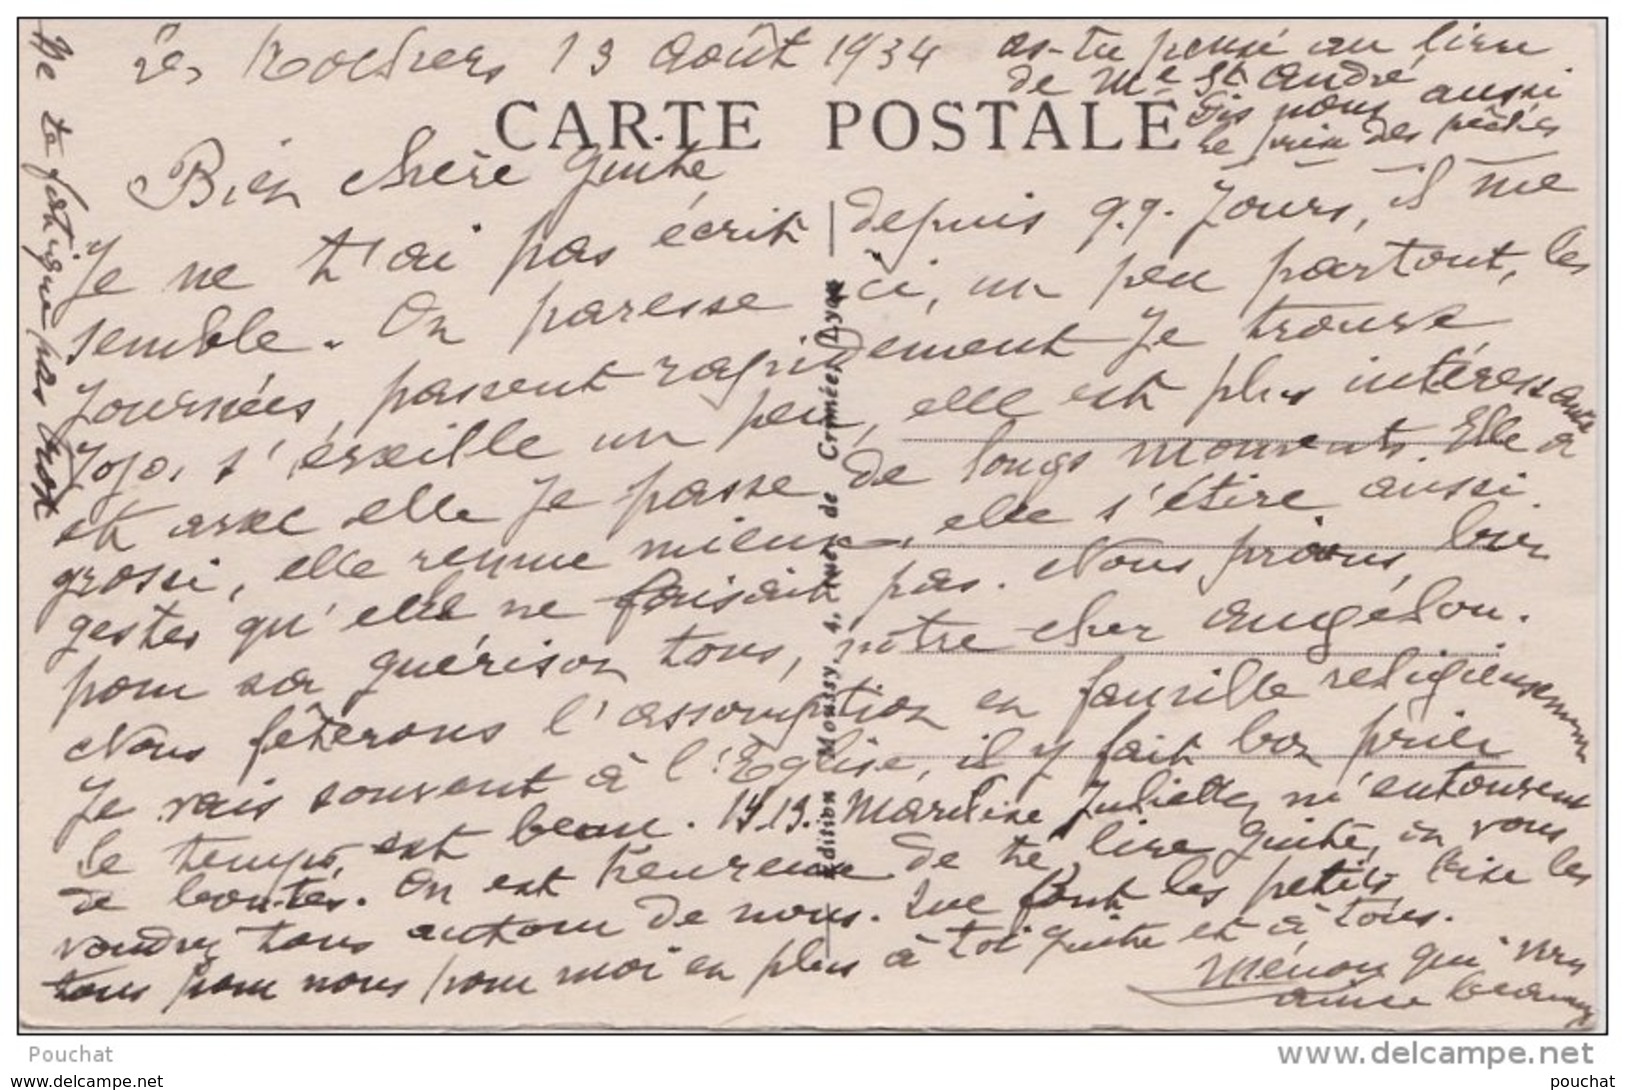 Les Rochers 13 Août 1934
as-tu pensé au livre
de Me St André
Dis nous aussi
le prix des pêches
CARTE POSTALE
Bien chère Guite
Je ne t'ai pas écrit depuis q.q. Jours, il me
semble. On paresse ici, un peu partout, les
Journées, passent rapidement Je trouve
Jojo, s'éveille un peu, elle est plus intéressante
et avec elle Je passe de longs moments. Elle a
grossi, elle remue mieux, elle s'étire aussi
gestes qu'elle ne faisait pas. Nous prions, bien
pour sa guérison tous, notre cher angélou.
Nous fêterons l'assomption en famille religieusement
Je vais souvent à l'Eglise, il y fait bon prier
le temps, est beau. Juliette, m'entourent
de bontés. On est heureux de te lire Guite, on vous
voudrez tous autour de nous. Que font les petits, bise les
tous pour nous pour moi en plus à toi Guite et à tous.
Ménou qui vous
aime beaucoup
Ne te fatigue pas trop
Edition Moussy, 4, rue de Crimée, Lyon
Pouchat
www.delcampe.net
www.delcampe.net
pouchat